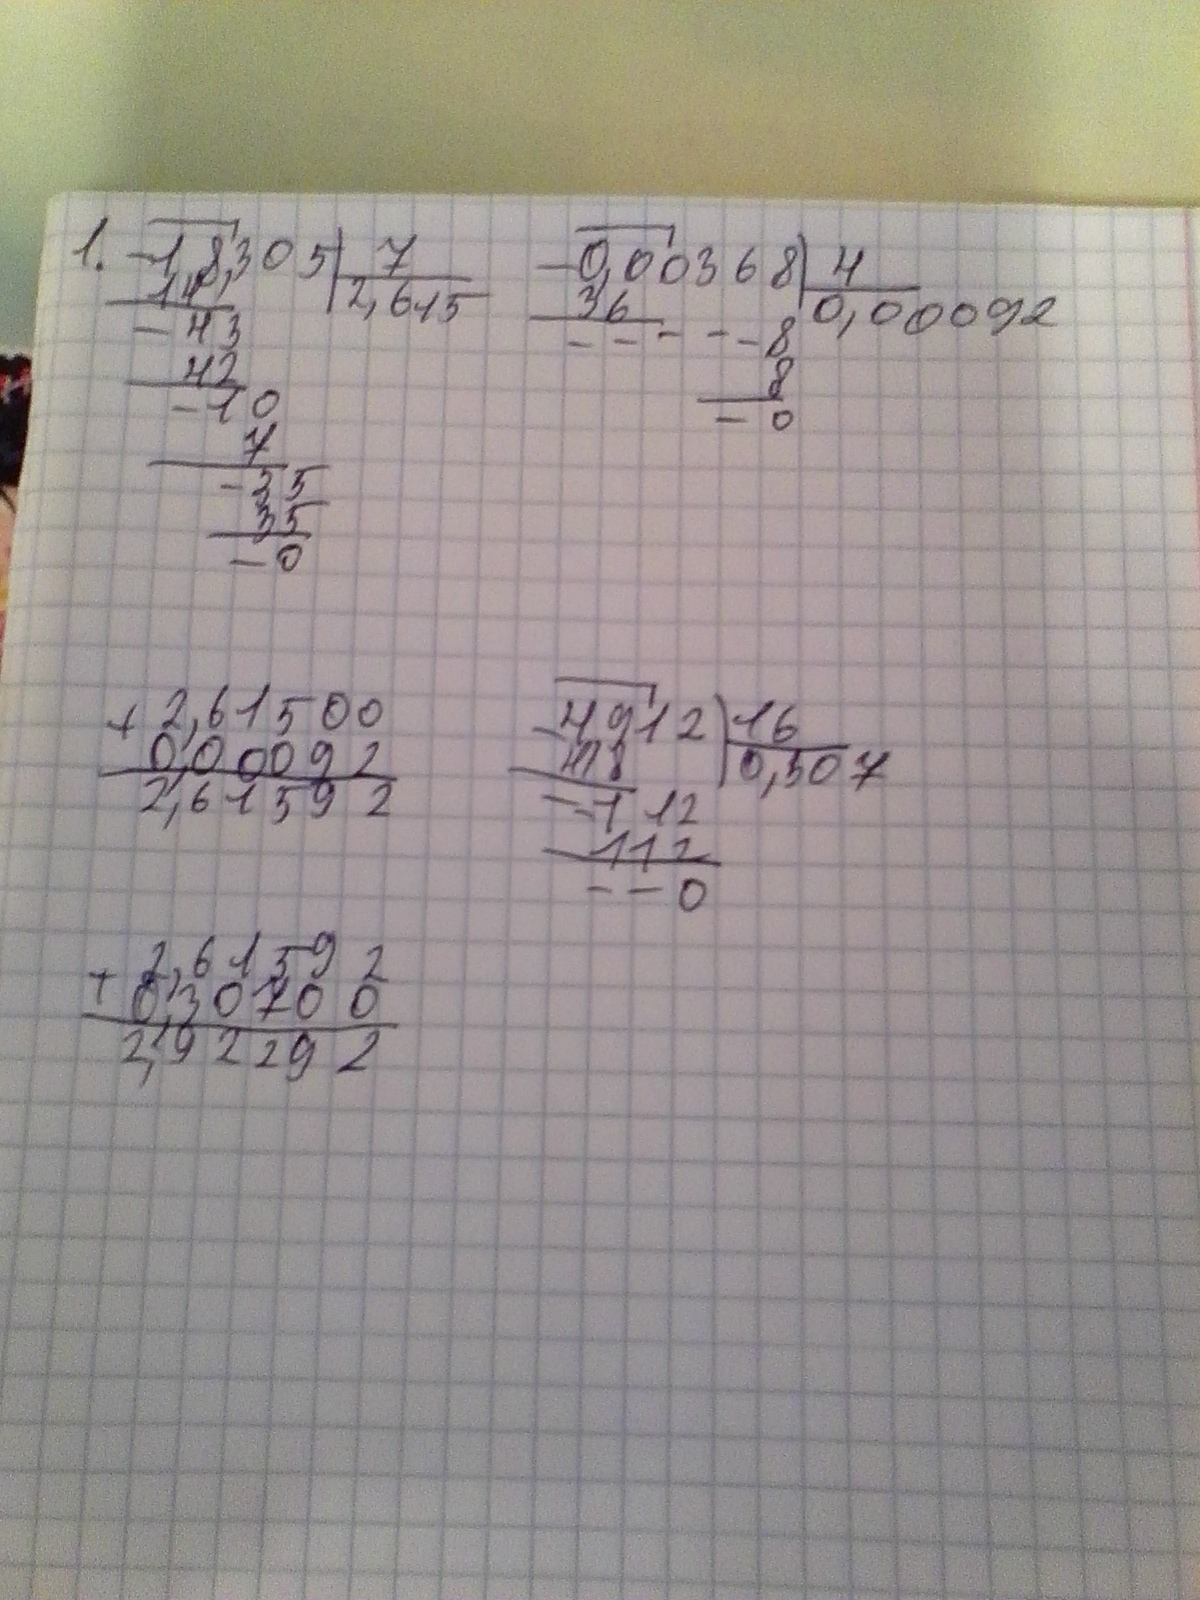 1. -18,305 | 7
14 2,615
-43
42
-10
7
-35
35
-0
-0,000368 | 4
36 0,000092
-----8
8
-0
+2,61500
0,00092
2,61592
-4912 | 16
48 0,307
--112
112
--0
2,61592
+0,30700
2,92292